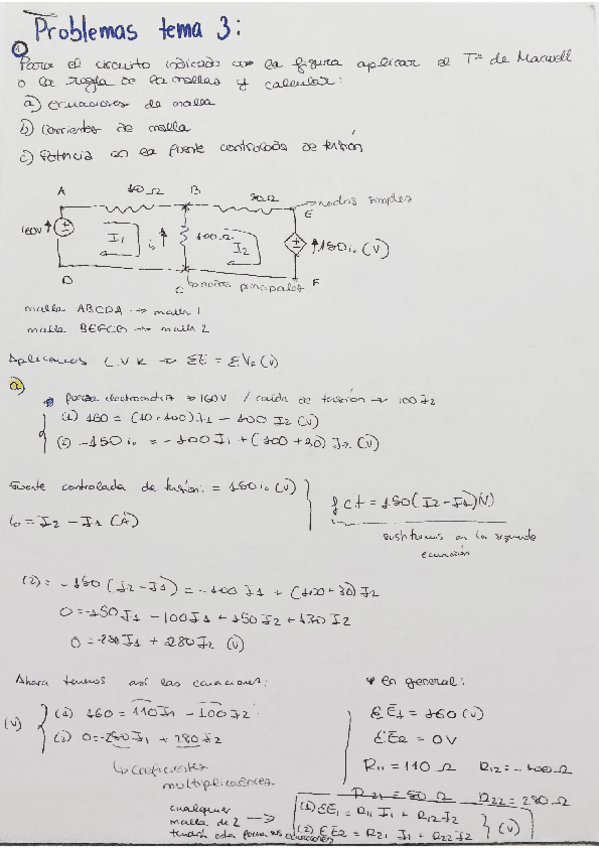 Problemas tema 3:
① Para el circuito indicado en la figura aplicar el Tª de Maxwell
o la regla de las mallas y calcular:
a) ecuaciones de malla
b) Corrientes de malla
c) Potencia en la fuente controlada de tensión
A 10 Ω B 30 Ω E → nodos simples
160V I₁ i₀ 100 Ω I₂ 150i₀ (V)
D C → nodos principales F
malla ABCDA → malla 1
malla BEFCB → malla 2
Aplicamos L.V.K → ΣE = ΣV (V)
a)
Fuerza electromotriz → 160V / caída de tensión → 100 I₂
(1) 160 = (10+100) I₁ - 100 I₂ (V)
(2) -150 i₀ = -100 I₁ + (100+30) I₂ (V)
Fuente controlada de tensión: = 150 i₀ (V)
i₀ = I₂ - I₁ (A)
fct = 150(I₂-I₁)(V)
sustituimos en la segunda
ecuación
(2) = -150 (I₂-I₁) = -100 I₁ + (100+30) I₂
0 = -150 I₁ - 100 I₁ + 150 I₂ + 130 I₂
0 = -250 I₁ + 280 I₂ (V)
Ahora tenemos así las ecuaciones:
(V) (1) 160 = 110 I₁ - 100 I₂
(2) 0 = -250 I₁ + 280 I₂
↳ Coeficientes
multiplicadores
* en general:
ΣE₁ = 160 (V)
ΣE₂ = 0 V
R₁₁ = 110 Ω R₁₂ = -100 Ω
R₂₂ = 280 Ω
cualquier
malla de 2 →
tendrá esta forma sus ecuaciones
(1) ΣE₁ = R₁₁ I₁ + R₁₂ I₂
(2) ΣE₂ = R₂₁ I₁ + R₂₂ I₂ (V)